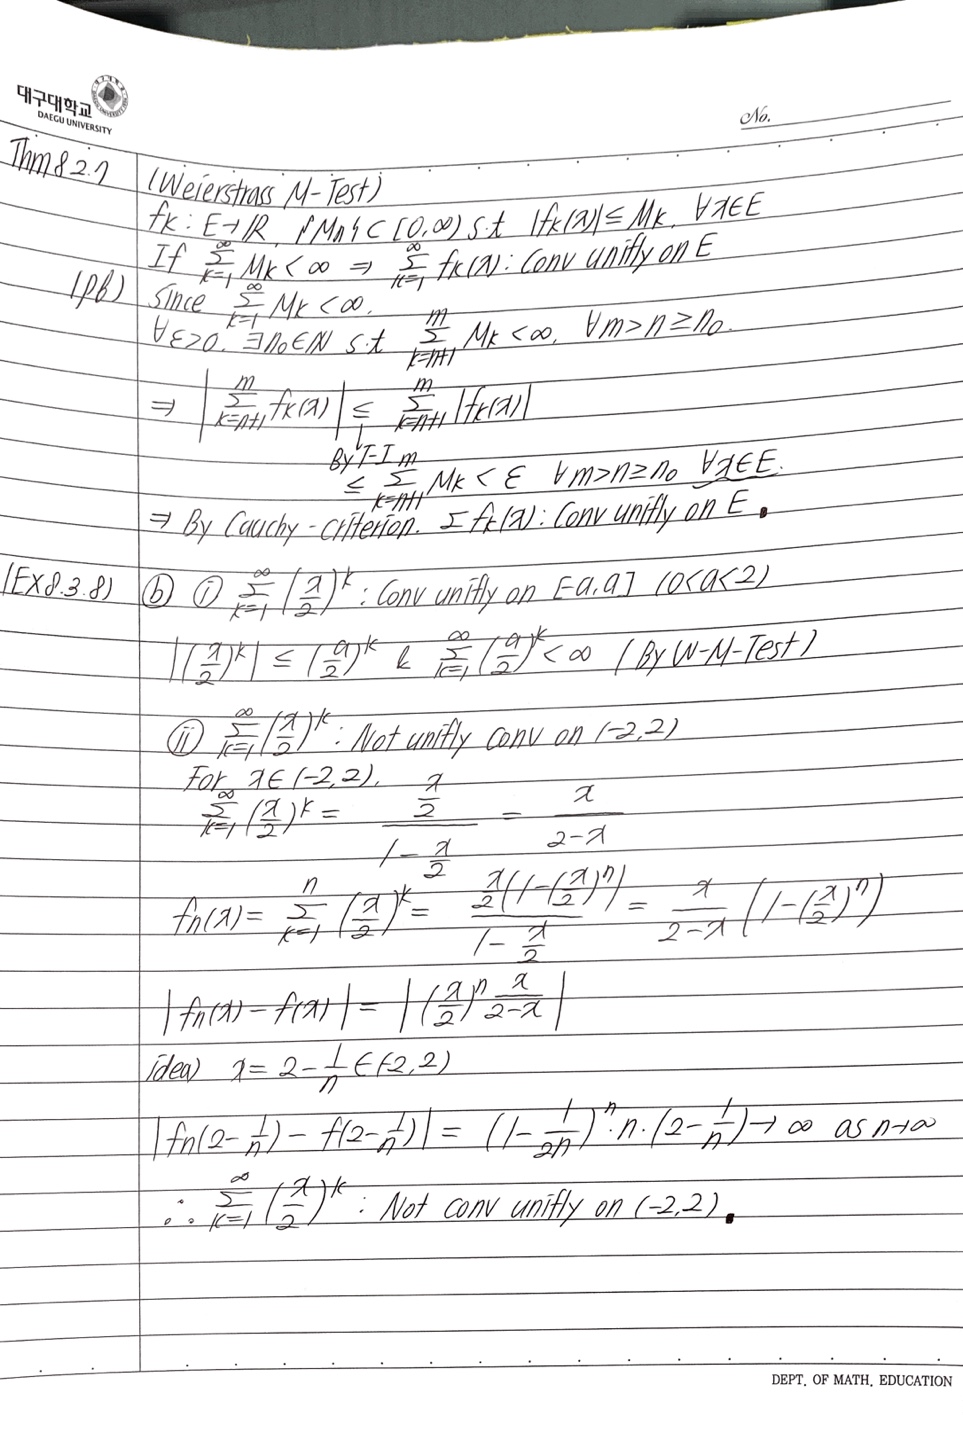 대구대학교
DAEGU UNIVERSITY
No.
Thm 8.2.7 (Weierstrass M-Test)
fk : E→ℝ, {Mn} ⊂ [0,∞) s.t |fk(x)| ≤ Mk, ∀x∈E
If ∑_{k=1}^{∞} Mk < ∞ ⇒ ∑_{k=1}^{∞} fk(x) : Conv unifly on E
(pf) Since ∑_{k=1}^{∞} Mk < ∞,
∀ε>0, ∃n₀∈ℕ s.t ∑_{k=n+1}^{m} Mk < ∞, ∀m>n≥n₀.
⇒ |∑_{k=n+1}^{m} fk(x)| ≤ ∑_{k=n+1}^{m} |fk(x)|
By T-I
≤ ∑_{k=n+1}^{m} Mk < ε ∀m>n≥n₀ ∀x∈E.
⇒ By Cauchy-criterion. Σfk(x) : Conv unifly on E.
(Ex8.3.8) ⓑ ⓘ ∑_{k=1}^{∞} (x/2)^k : Conv unifly on [-a,a] (0<a<2)
|(x/2)^k| ≤ (a/2)^k & ∑_{k=1}^{∞} (a/2)^k < ∞ (By W-M-Test)
(ii) ∑_{k=1}^{∞} (x/2)^k : Not unifly conv on (-2,2)
For x∈(-2,2),
∑_{k=1}^{∞} (x/2)^k = (x/2)/(1-x/2) = x/(2-x)
fn(x) = ∑_{k=1}^{n} (x/2)^k = (x/2(1-(x/2)^n))/(1-x/2) = x/(2-x) (1-(x/2)^n)
|fn(x)-f(x)| = |(x/2)^n x/(2-x)|
idea) x = 2-1/n ∈(-2,2)
|fn(2-1/n) - f(2-1/n)| = (1-1/2n)^n·n·(2-1/n) → ∞ as n→∞
∴ ∑_{k=1}^{∞} (x/2)^k : Not conv unifly on (-2,2).
DEPT. OF MATH. EDUCATION